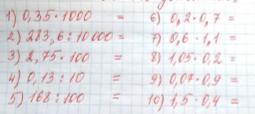 1) 0,35 · 1000 =
2) 283,6 : 10000 =
3) 2,75 · 100 =
4) 0,13 : 10 =
5) 168 : 100 =
6) 0,2 · 0,7 =
7) 0,6 · 1,1 =
8) 1,05 · 0,2 =
9) 0,07 · 0,9 =
10) 1,5 · 0,4 =